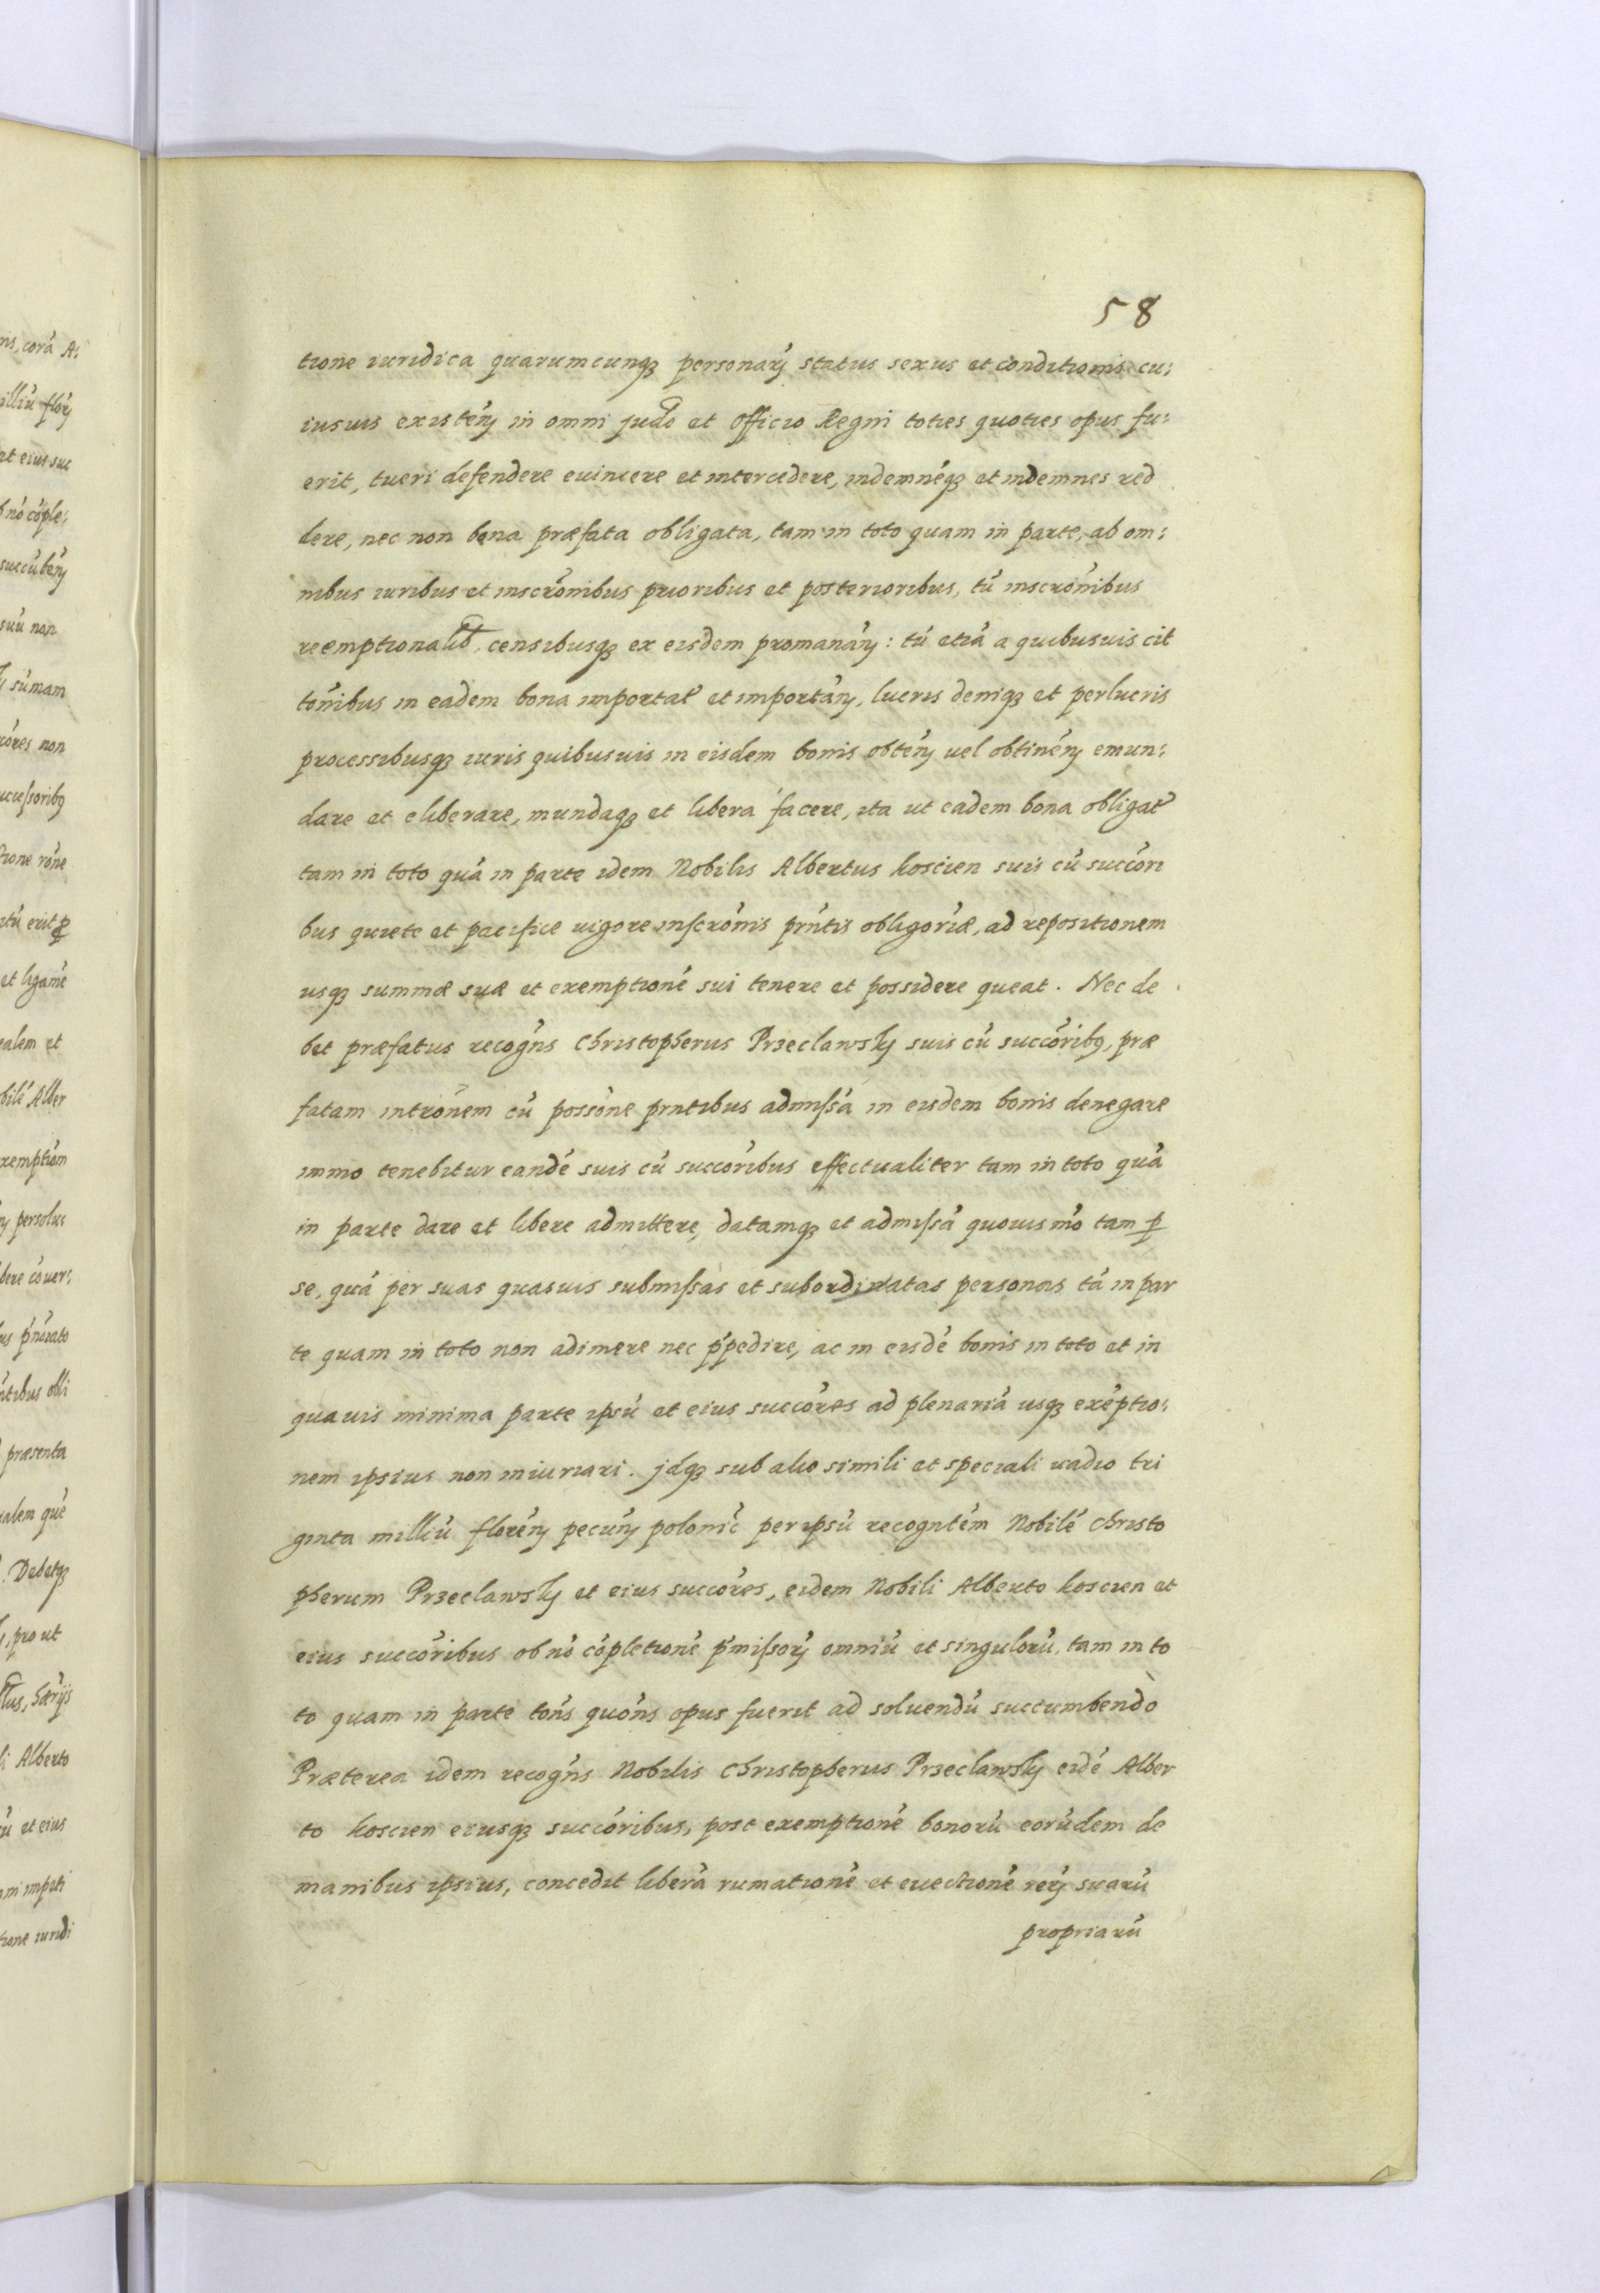 58
tione iuridica quarumcunqꝫ personarꝫ status sexus et conditionis cu:
iusuis existeń in omni judo et Officio Regni toties quoties opus fu:
erit, tueri defendere euincere et intercedere, indemnéqꝫ et indemnes red
dere, nec non bona præfata obligata, tam in toto quam in parte, ab om:
nibus iuribus et inscrónibus prioribus et posterioribus, tú inscrónibus
reemptionalib. censibusqꝫ ex eisdem promanáń: tú etiá a quibusuis cit
tónibus in eadem bona importat et importáń, lucris deniqꝫ et perlucris
processibusqꝫ iuris quibusuis in eisdem bonis obteń uel obtinéń emun:
dare et eliberare, mundaqꝫ et libera facere, ita ut eadem bona obligat
tam in toto quá in parte idem Nobilis Albertus koscien suis cú succóri
bus quiete et pacifice uigore inscrónis prńtis obligoriæ, ad repositionem
usqꝫ summæ suæ et exemptioné sui tenere et possidere queat. Nec de
bet præfatus recogńs Christopherus Przeclawsky suis cú succóribꝫ, præ
fatam intrónem cú possóne prntibus admissá in eisdem bonis denegare
immo tenebitur eandé suis cú succóribus effectualiter tam in toto quá
in parte dare et libere admittere, datamqꝫ et admissá quouis mó tam ꝑ
se, quá per suas quasuis submissas et subordinatas personas tá in par
te quam in toto non adimere nec ṕpedire, ac in eisdé bonis in toto et in
quauis minima parte ipsú et eius succóres ad plenariá usqꝫ exéptio:
nem ipsius non iniuriari. jdqꝫ sub alio simili et speciali uadio tri
ginta milliú floréń pecuń polonic per ipsú recogntém Nobilé Christo
pherum Przeclawsky et eius succóres, eidem Nobili Alberto koscien et
eius succóribus ob nó cópletioné ṕmissorꝫ omniú et singulorú, tam in to
to quam in parte tońs quońs opus fuerit ad soluendú succumbendo
Præterea idem recogńs Nobilis Christopherus Przeclawsky eidé Alber
to koscien eiusqꝫ succóribus, post exemptioné bonorú eorúdem de
manibus ipsius, concedit liberá rumationé et euectioné rerꝫ suarú
propriarú